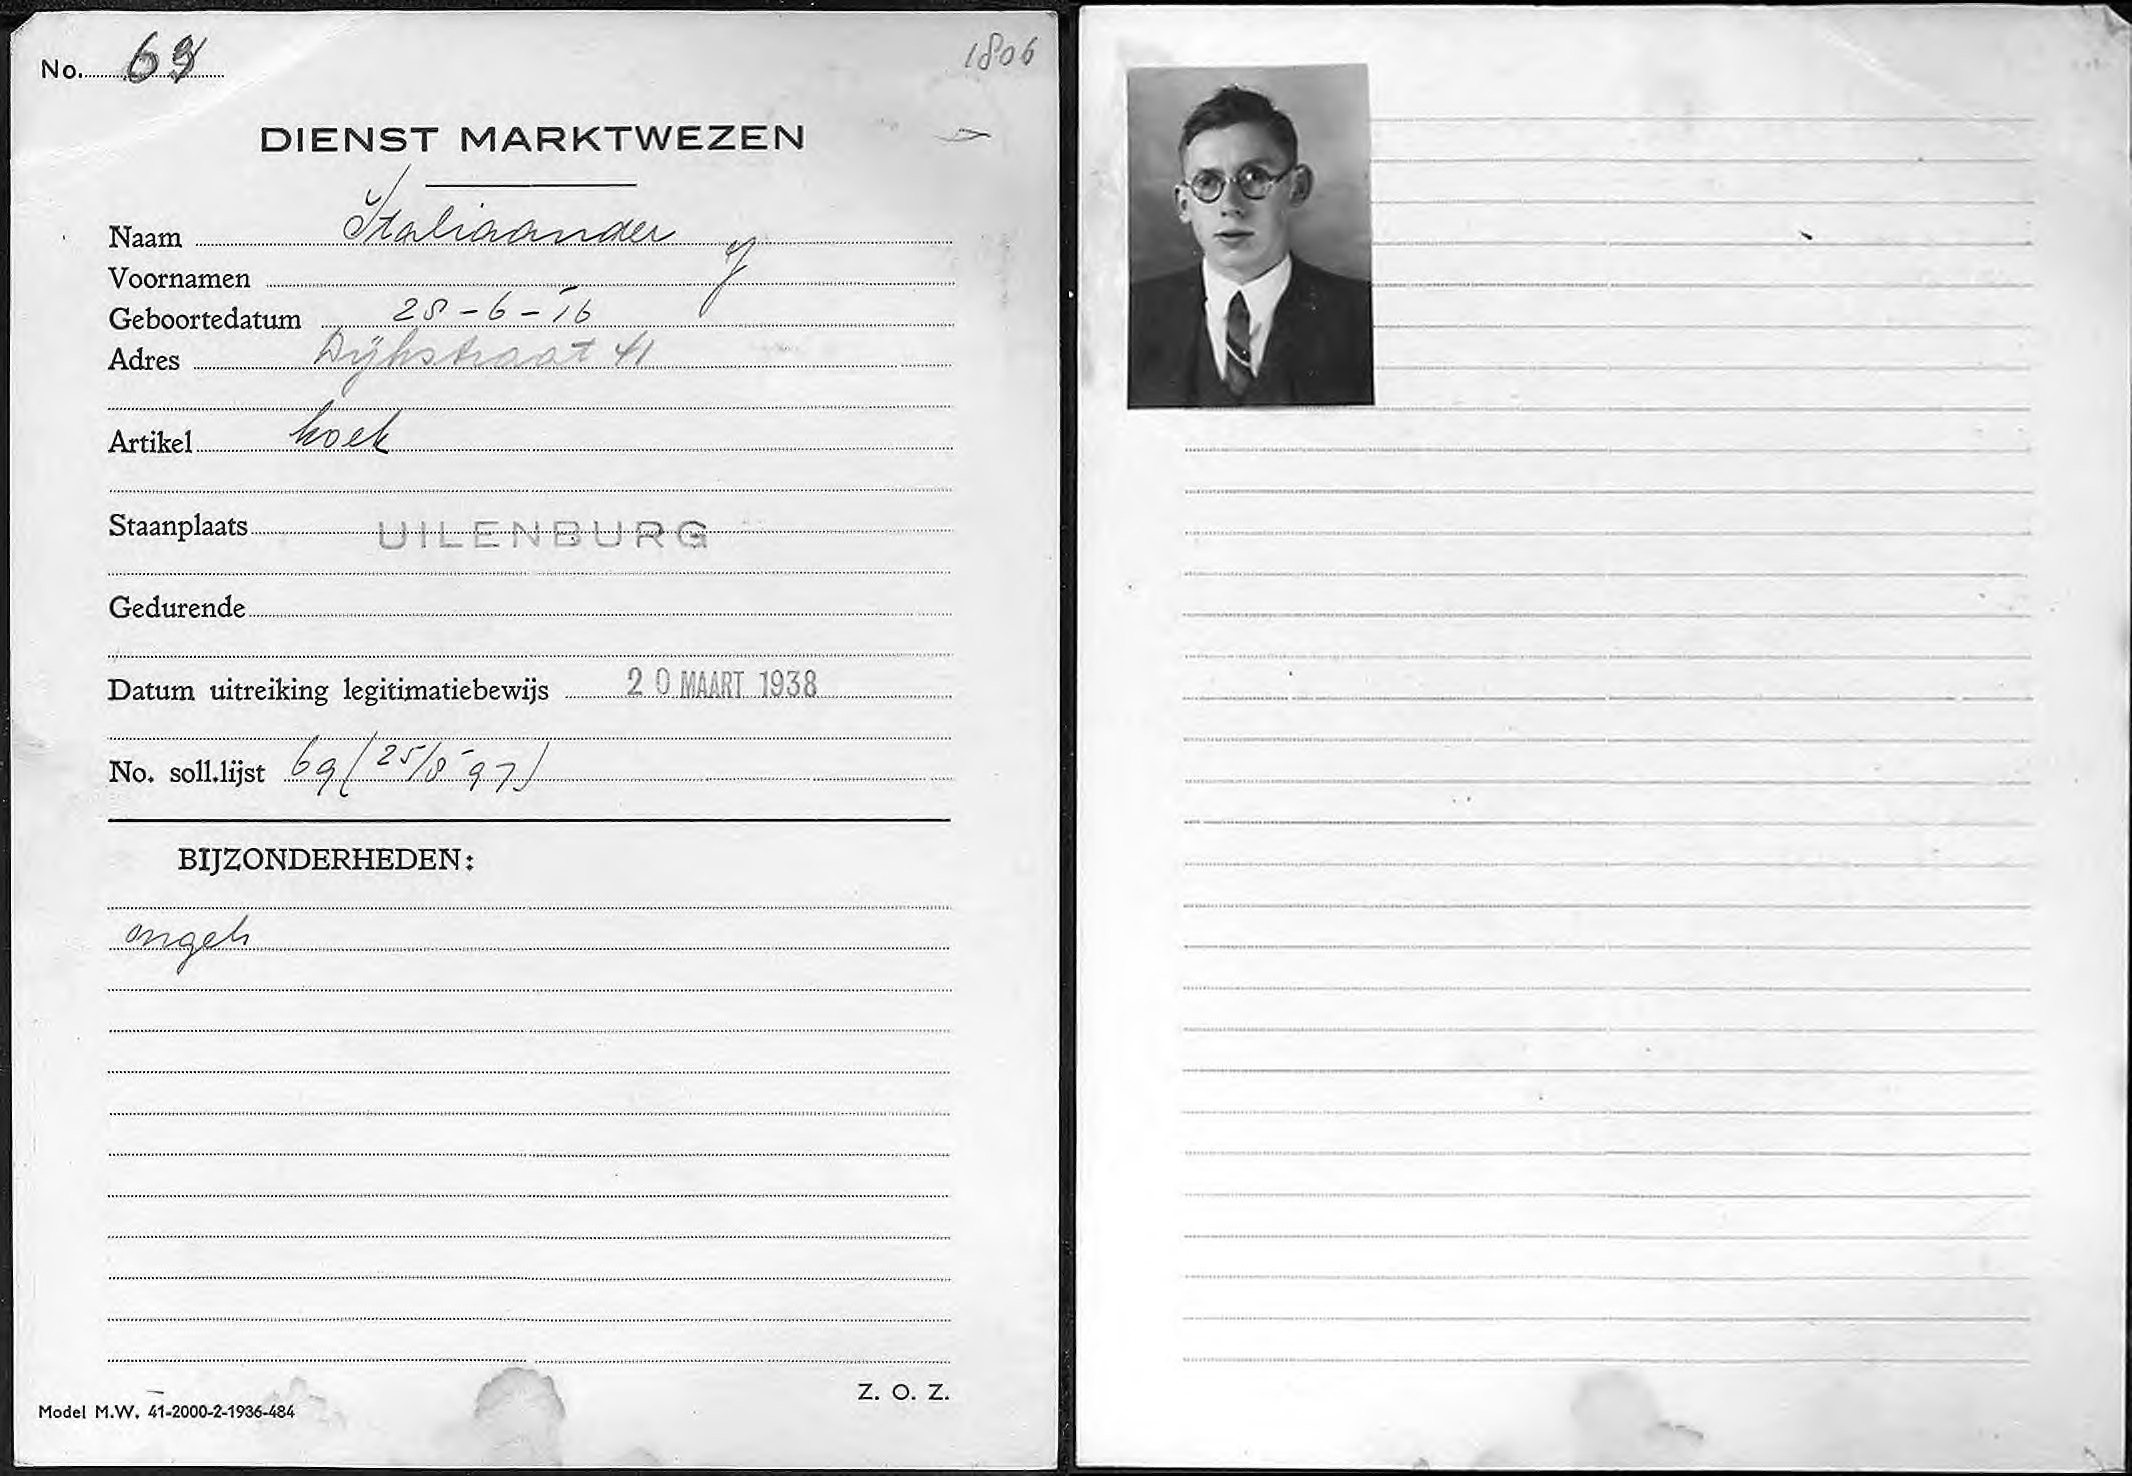 No. 69
1806
DIENST MARKTWEZEN
Naam Italiaander
Voornamen J
Geboortedatum 28-6-16
Adres Dijkstraat 41
Artikel koek
Staanplaats UILENBURG
Gedurende
Datum uitreiking legitimatiebewijs 20 MAART 1938
No. soll.lijst 69 (25/8 97)
BIJZONDERHEDEN:
ongeh
Z. O. Z.
Model M.W. 41-2000-2-1936-484